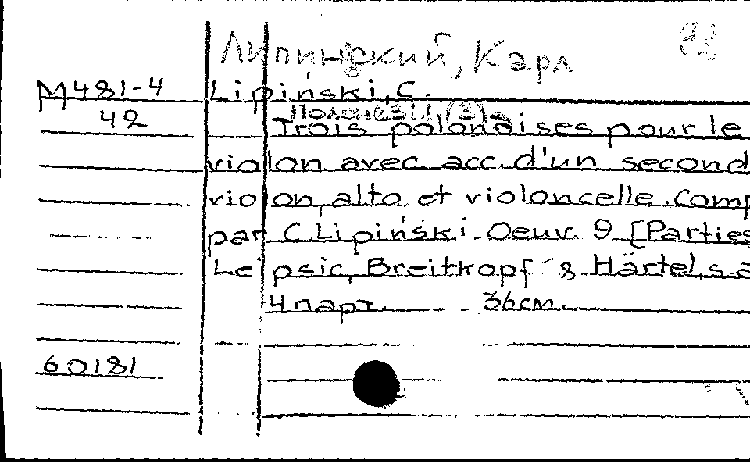 Липинский, Карл
М481-4 Lipiński, C.
Полонезы, (3)
42 Trois polonaises pour le
violon avec acc. d'un second
violon, alto et violoncelle. Comp
par C. Lipiński. Oeuv. 9 [Parties
Leipsic, Breitkopf & Härtel, s.a
4 парт. 36 см.
60181